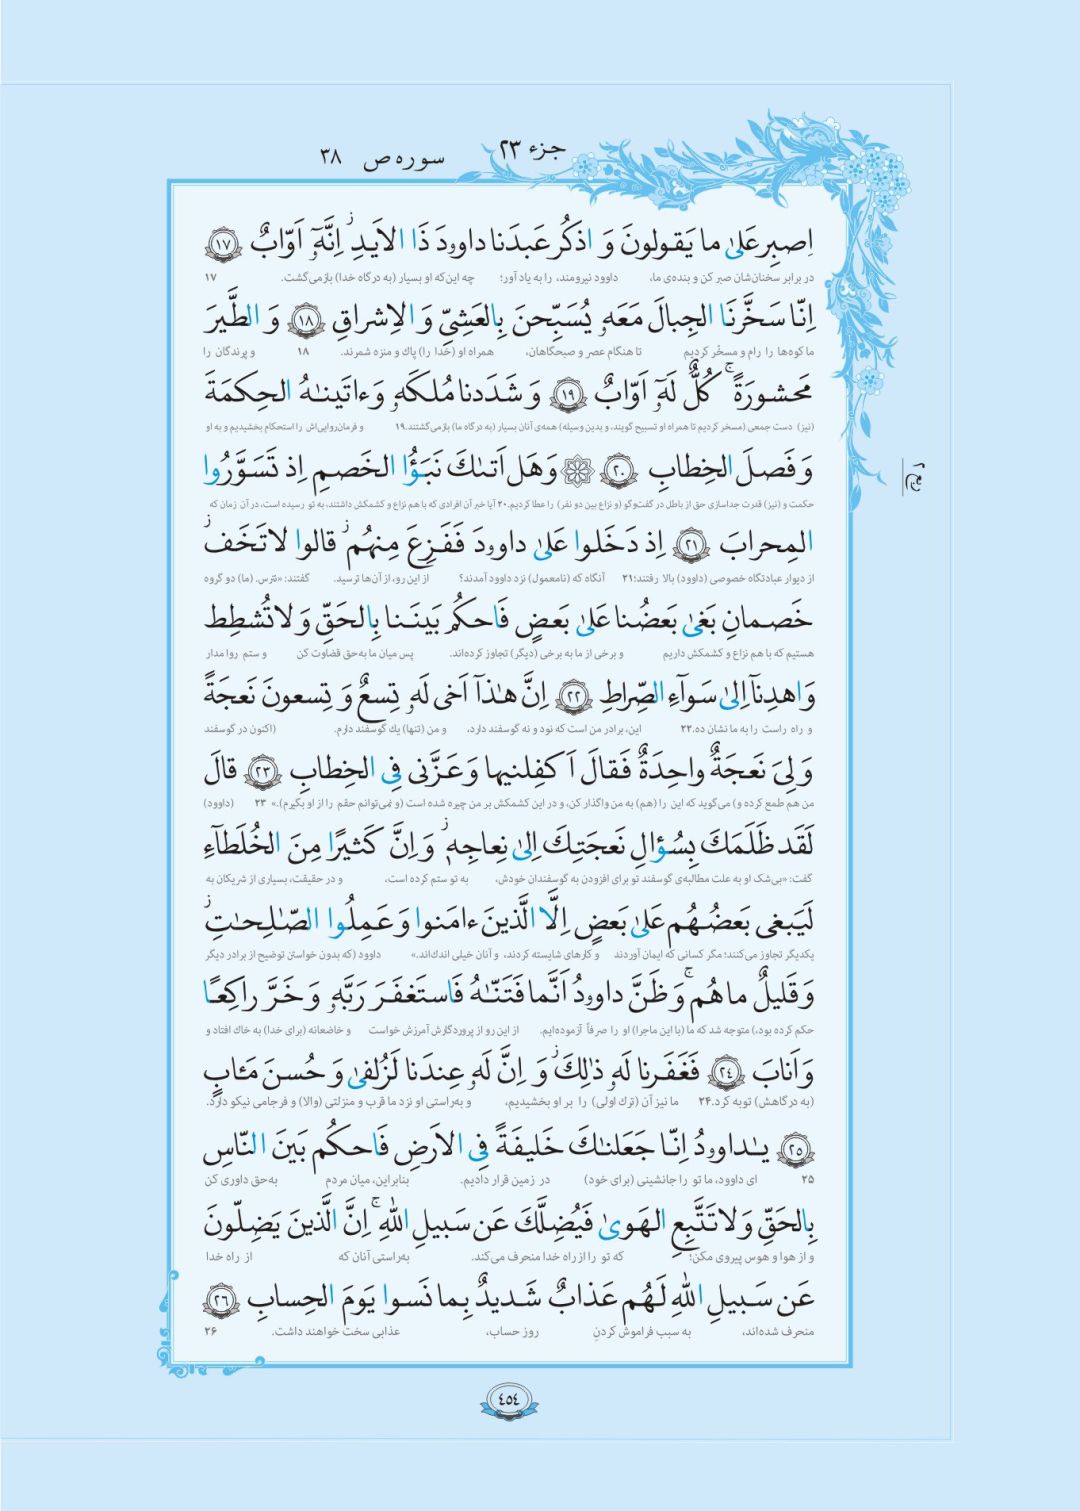 جزء ۲۳
سوره ص ۳۸
اِصبِر عَلىٰ ما يَقولونَ وَ اذكُر عَبدَنا داوودَ ذَا الاَيدِ ۖ اِنَّهٗٓ اَوّابٌ ﴿١٧﴾
در برابر سخنان‌شان صبر کن و بنده‌ی ما، داوود نیرومند، را به یاد آور؛ چه این‌که او بسیار (به درگاه خدا) بازمی‌گشت. ۱۷
اِنّا سَخَّرنَا الجِبالَ مَعَهٗ يُسَبِّحنَ بِالعَشِيِّ وَ الاِشراقِ ﴿١٨﴾ وَ الطَّيرَ
ما کوه‌ها را رام و مسخّر کردیم تا هنگام عصر و صبحگاهان، همراه او (خدا را) پاك و منزه شمرند. ۱۸ و پرندگان را
مَحشورَةً ۖ كُلٌّ لَهٗٓ اَوّابٌ ﴿١٩﴾ وَ شَدَدنا مُلكَهٗ وَ ءاتَينٰهُ الحِكمَةَ
(نیز) دست جمعی (مسخر کردیم تا همراه او تسبیح گویند، و بدین وسیله) همه‌ی آنان بسیار (به درگاه ما) بازمی‌گشتند.۱۹ و فرمان‌روایی‌اش را استحکام بخشیدیم و به او
وَ فَصلَ الخِطابِ ﴿٢٠﴾ وَ هَل اَتىٰكَ نَبَؤُا الخَصمِ اِذ تَسَوَّرُوا
حکمت و (نیز) قدرت جداسازی حق از باطل در گفت‌وگو (و نزاع بین دو نفر) را عطا کردیم.۲۰ آیا خبر آن افرادی که با هم نزاع و کشمکش داشتند، به تو رسیده است، در آن زمان که
المِحرابَ ﴿٢١﴾ اِذ دَخَلوا عَلىٰ داوودَ فَفَزِعَ مِنهُم ۖ قالوا لا تَخَف ۖ
از دیوار عبادتگاه خصوصی (داوود) بالا رفتند؛۲۱ آنگاه که (نامعمول) نزد داوود آمدند؟ از این رو، از آن‌ها ترسید. گفتند: «نترس. (ما) دو گروه
خَصمانِ بَغىٰ بَعضُنا عَلىٰ بَعضٍ فَاحكُم بَينَنا بِالحَقِّ وَ لا تُشطِط
هستیم که با هم نزاع و کشمکش داریم و برخی از ما به برخی (دیگر) تجاوز کرده‌اند. پس میان ما به‌حق قضاوت کن و ستم روا مدار
وَ اهدِنآ اِلىٰ سَوآءِ الصِّراطِ ﴿٢٢﴾ اِنَّ هٰذآ اَخى لَهٗ تِسعٌ وَ تِسعونَ نَعجَةً
و راه راست را به ما نشان ده.۲۲ این، برادر من است که نود و نه گوسفند دارد، و من (تنها) یك گوسفند دارم. (اکنون در گوسفند
وَ لِىَ نَعجَةٌ واحِدَةٌ فَقالَ اَكفِلنيها وَ عَزَّنى فِى الخِطابِ ﴿٢٣﴾ قالَ
من هم طمع کرده و) می‌گوید که این را (هم) به من واگذار کن، و در این کشمکش بر من چیره شده است (و نمی‌توانم حقم را از او بگیرم).» ۲۳ (داوود)
لَقَد ظَلَمَكَ بِسُؤالِ نَعجَتِكَ اِلىٰ نِعاجِهٖ ۖ وَ اِنَّ كَثيرًا مِنَ الخُلَطآءِ
گفت: «بی‌شک او به علت مطالبه‌ی گوسفند تو برای افزودن به گوسفندان خودش، به تو ستم کرده است، و در حقیقت، بسیاری از شریکان به
لَيَبغى بَعضُهُم عَلىٰ بَعضٍ اِلَّا الَّذينَ ءامَنوا وَ عَمِلُوا الصّٰلِحٰتِ ۖ
یکدیگر تجاوز می‌کنند؛ مگر کسانی که ایمان آوردند و کارهای شایسته کردند، و آنان خیلی اندك‌اند.» داوود (که بدون خواستن توضیح از برادر دیگر
وَ قَليلٌ ما هُم ۗ وَ ظَنَّ داوودُ اَنَّما فَتَنّٰهُ فَاستَغفَرَ رَبَّهٗ وَ خَرَّ راكِعًا
حکم کرده بود،) متوجه شد که ما (با این ماجرا) او را صرفاً آزموده‌ایم. از این رو از پروردگارش آمرزش خواست و خاضعانه (برای خدا) به خاك افتاد و
وَ اَنابَ ﴿٢٤﴾ فَغَفَرنا لَهٗ ذٰلِكَ ۖ وَ اِنَّ لَهٗ عِندَنا لَزُلفىٰ وَ حُسنَ مَـٔابٍ
(به درگاهش) توبه کرد.۲۴ ما نیز آن (ترك اولی) را بر او بخشیدیم، و به‌راستی او نزد ما قرب و منزلتی (والا) و فرجامی نیکو دارد.
﴿٢٥﴾ يٰداوودُ اِنّا جَعَلنٰكَ خَليفَةً فِى الاَرضِ فَاحكُم بَينَ النّاسِ
۲۵ ای داوود، ما تو را جانشینی (برای خود) در زمین قرار دادیم. بنابراین، میان مردم به‌حق داوری کن
بِالحَقِّ وَ لا تَتَّبِعِ الهَوىٰ فَيُضِلَّكَ عَن سَبيلِ اللّٰهِ ۚ اِنَّ الَّذينَ يَضِلّونَ
و از هوا و هوس پیروی مکن؛ که تو را از راه خدا منحرف می‌کند. به‌راستی آنان که از راه خدا
عَن سَبيلِ اللّٰهِ لَهُم عَذابٌ شَديدٌ بِما نَسوا يَومَ الحِسابِ ﴿٢٦﴾
منحرف شده‌اند، به سبب فراموش کردنِ روز حساب، عذابی سخت خواهند داشت. ۲۶
٤٥٤